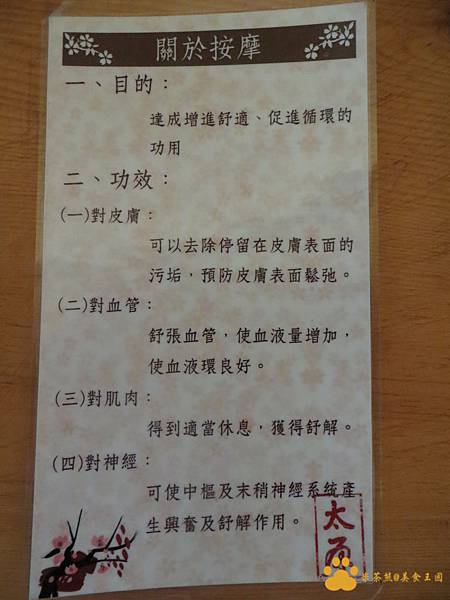 關於按摩
一、目的：
達成增進舒適、促進循環的
功用
二、功效：
(一)對皮膚：
可以去除停留在皮膚表面的
污垢，預防皮膚表面鬆弛。
(二)對血管：
舒張血管，使血液量增加，
使血液環良好。
(三)對肌肉：
得到適當休息，獲得舒解。
(四)對神經：
可使中樞及末稍神經系統產
生興奮及舒解作用。